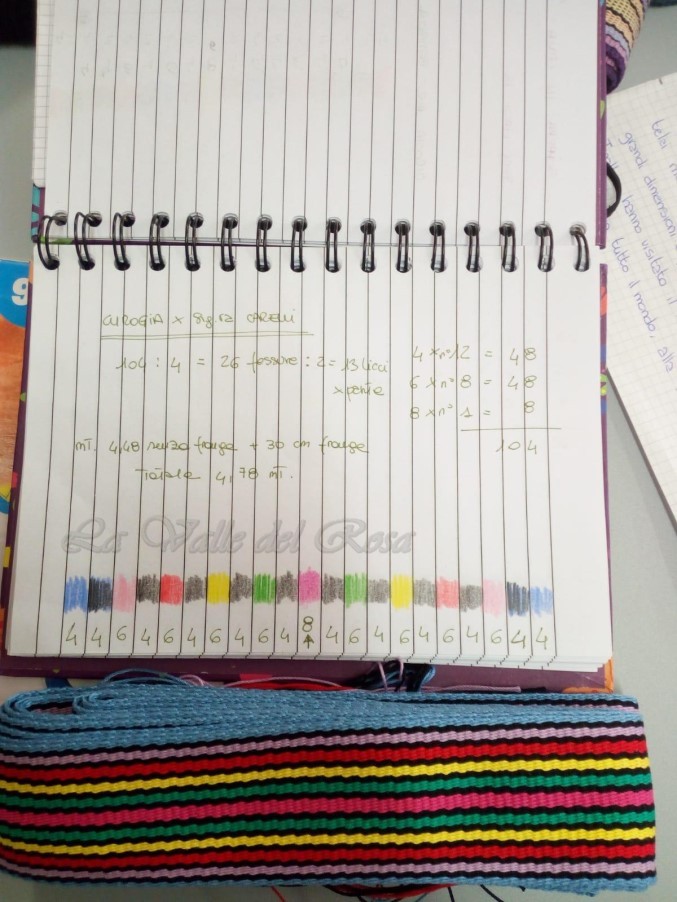 CUROGIA x Sig.ra
104 : 4 = 26 fessure : 2 = 13 licci
x parte
4 x n° 12 = 48
6 x n° 8 = 48
8 x n° 1 = 8
104
mT. 4,48 senza frange + 30 cm frange
Totale 4,78 mT.
La Valle del Resa
4 4 6 4 6 4 6 4 6 4 8 4 6 4 6 4 6 4 6 4 4
telai
grandi dimensioni
hanno visitato il
tutto il mondo, alla
9